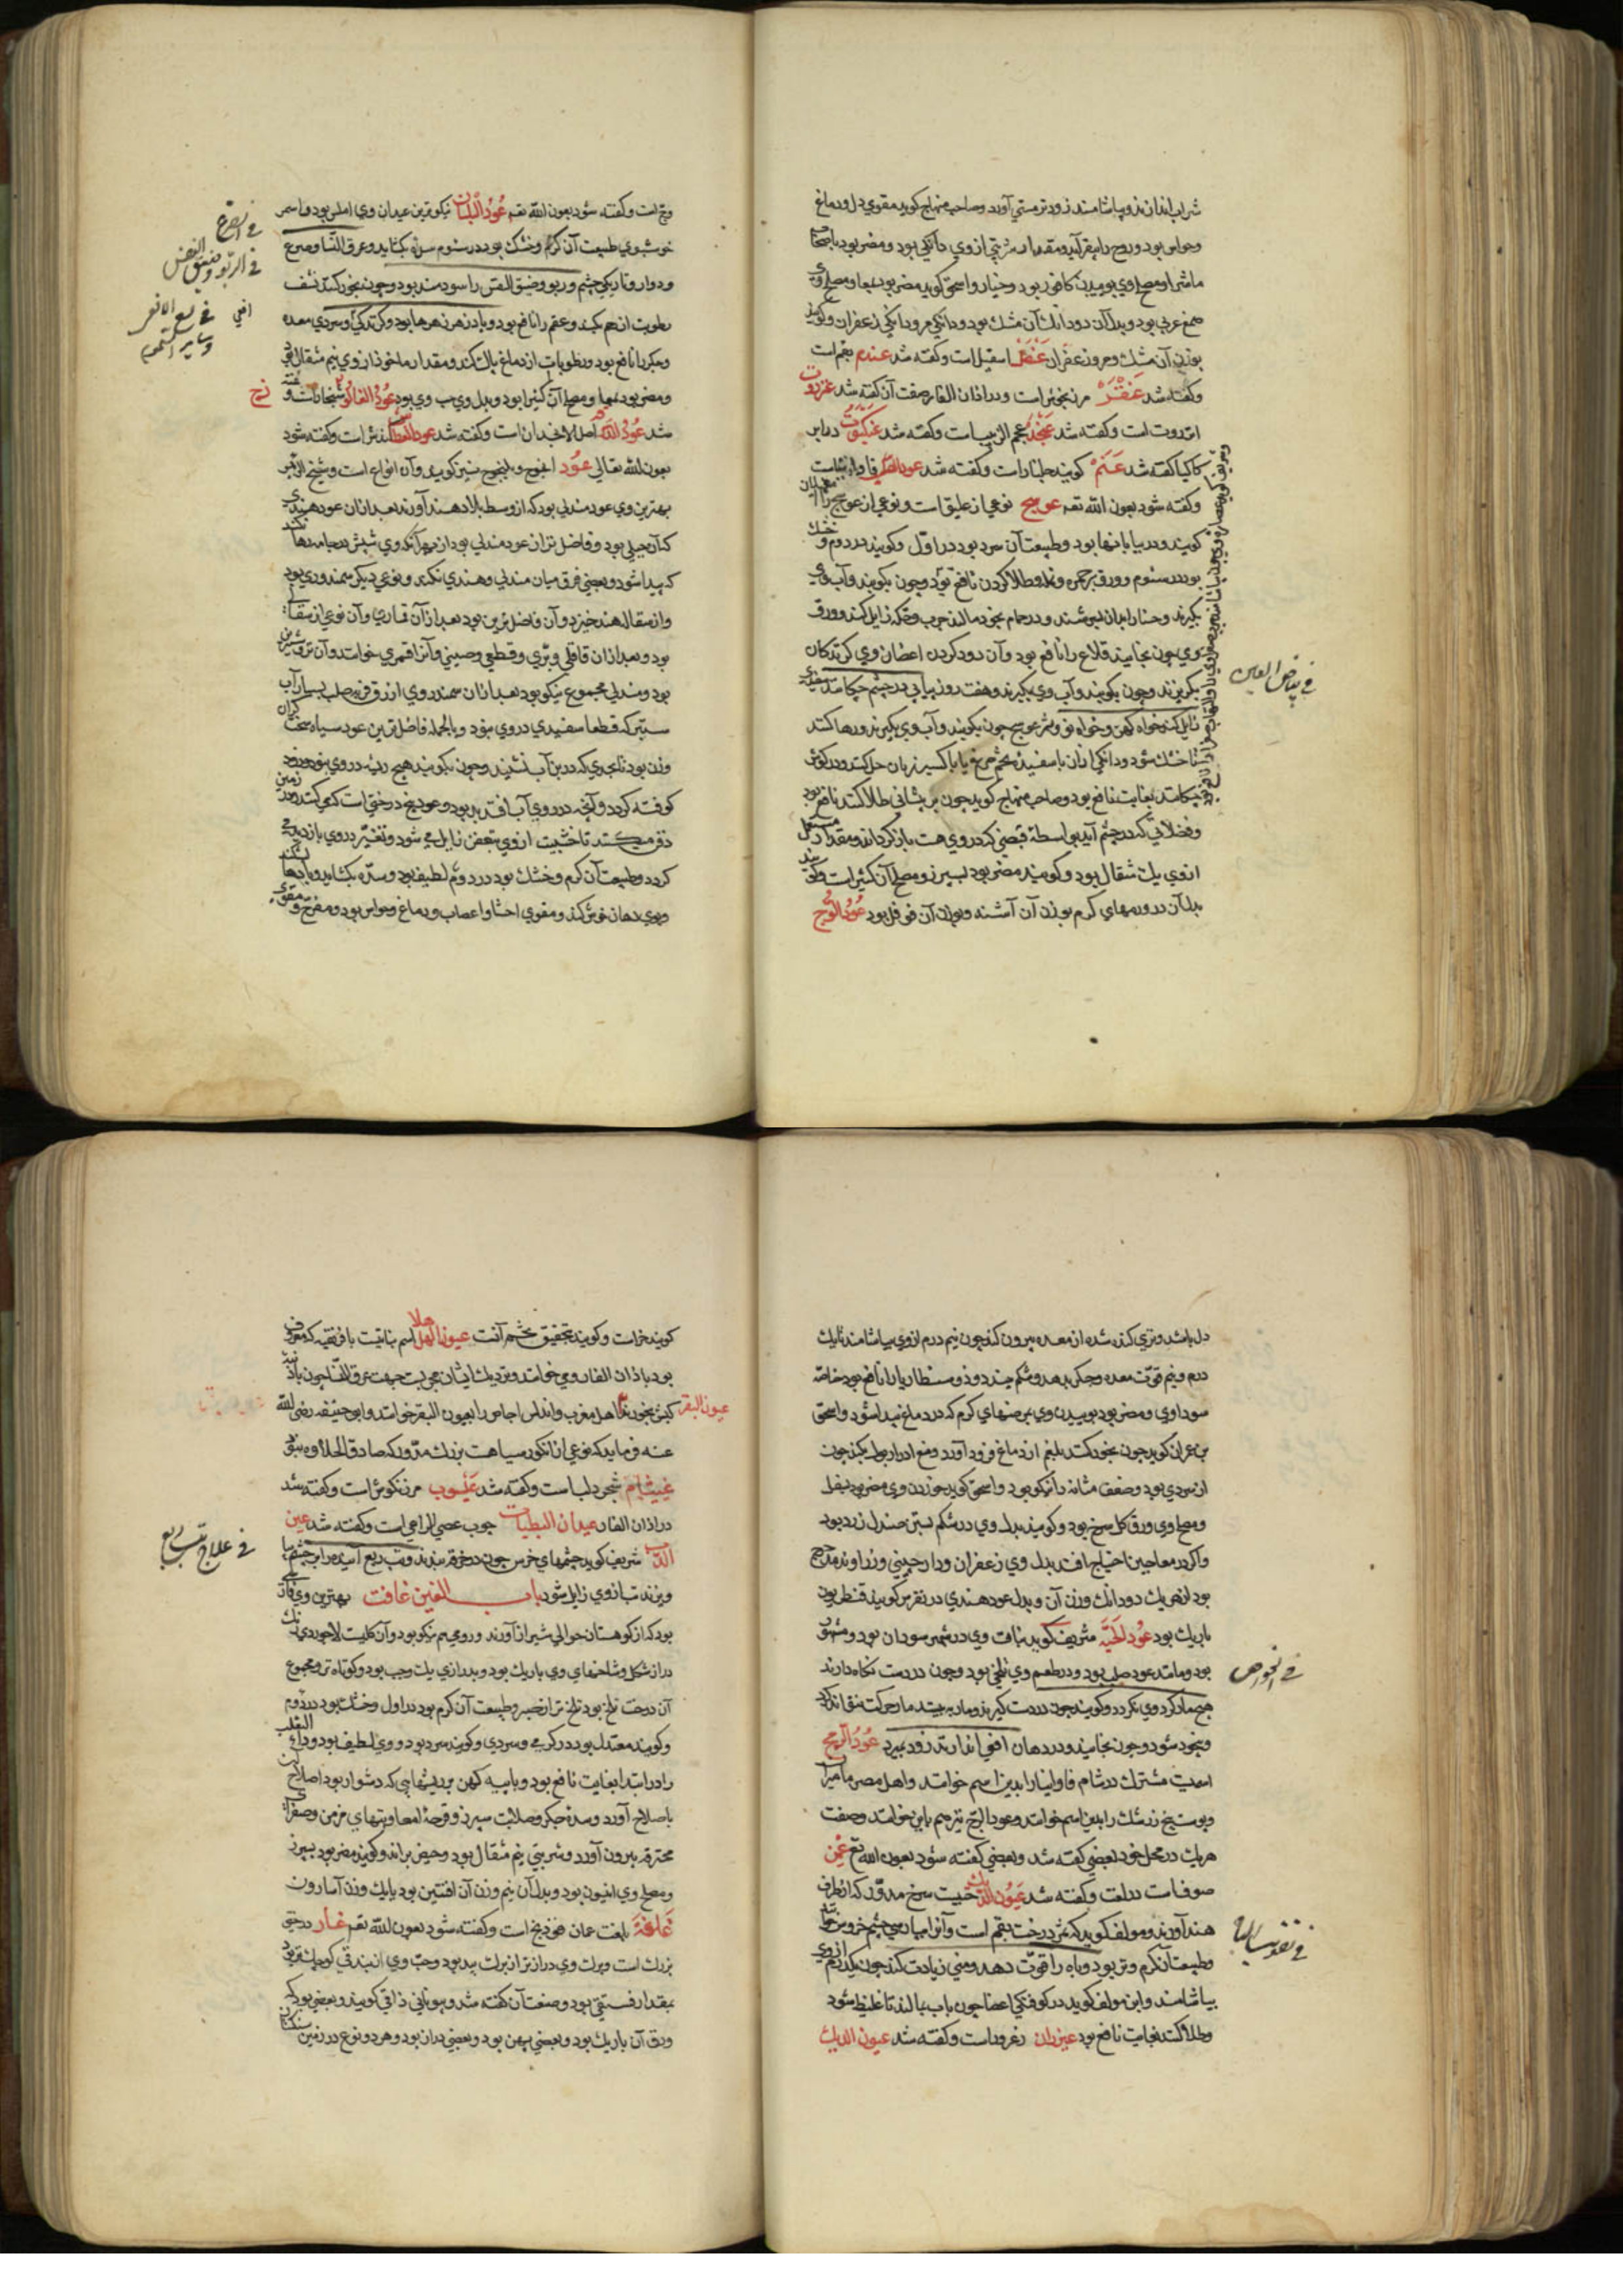 شراب اندازند و بیاشامند زودتر مستی آورد و صاحب منهاج کوید مقوی دل و دماغ
وحواس بود و روح را بیفزاید و مقدار شربتی از وی دانکی بود و مضر بود باصحاب
ماشرا و مصلح وی بوییدن کافور بود و خیار و اسحق کوید مضر بود بمعا و مصلح وی
صمغ عربی بود و بدل آن دو دانک آن مشک بود و دانکی مرو دانکی زعفران و کویند
بوزن آن مشک و مر و زعفران عنصل اسقیل است و کفته شد عندم بقم است
و کفته شد عنقز مرزنجوش است و در اذان الفار صفت آن کفته شد عنزروت
انزروت است و کفته شد عنجد عجم الزبیب است و کفته شد عنکبوت
کاکیا کفته شد عنم کویند و کفته شد عود الصلیب فاوانیا است
و کفته شود بعون الله تعه عوسج نوعی از علیق است و نوعی از عوسج را
کویند و در بیابانها بود و طبیعت آن سرد بود در اول و کویند در دوم و خشک
بود در سئوم و ورق بر جمره و نمله طلا کردن نافع بود و چون بکویند و آب وی
بکیرند و حنا را بدان بسرشند و در حمام بخود مالند جرب و حکه زایل کند و ورق
وی چون بخایند قلاع را نافع بود و آن دود کردن اغصان وی کزندکان
بکریزند و چون بکویند و آب وی بکیرند و هفت روز پیاپی در چشم چکانند سفیدی
زایل کند خواه کهن و خواه نو و ثمر عوسج چون بکویند و آب وی بکیرند و رها کنند
تا خشک شود و دانکی از آن با سفیده تخم مرغ یا با شیر زنان حل کنند و در کوش
چکانند بغایت نافع بود و صاحب منهاج کوید چون بر پیشانی طلا کنند نافع بود
و فضلاتی که در چشم آید بواسطه قبضی که در وی هست باز کرداند و مقدار مستعمل
از وی یک مثقال بود و کویند مضر بود بسپرز و مصلح آن کثیراست و کویند
بدل آن در ورمهای کرم بوزن آن آشنه و بوزن آن فوفل بود عود الوج
فی بیاض العین
وج است و کفته شود بعون الله تعه عود البلسان نیکوترین عیدان وی املس بود و اسمر
خوشبوی طبیعت آن کرم و خشک بود در سئوم سده بکشاید و عرق النسا و صرع
و دوار و تاریکی چشم و ربو و ضیق النفس را سودمند بود و چون بخور کنند نشف
رطوبت از رحم بکند و عقم را نافع بود و بادزهر زهرها بود و کزندکی و سردی معده
و جکر را نافع بود و رطوبات از دماغ پاک کند و مقدار ماخوذ از وی نیم مثقال بود
و مضر بود و مصلح آن کثیرا بود و بدل وی حب وی بود عود الفالوذ و کفته
شد اصل الانجدان است و کفته شد عود العطاس کندش است و کفته شود
بعون الله تعالی عود النجوج و یلنجوج نیز کویند و آن انواع است و شیخ الرئیس
بهترین وی عود مندلی بود که از وسط بلاد هند آورند بعد از آن عود هندی
که آن جبلی بود و فاضل تر از عود مندلی بود از بهر آنکه وی شپش در جامه رها نکند
که پیدا شود و بعضی فرق میان مندلی و هندی نکنند و نوعی دیکر سمندوری بود
و از سفاله هند خیزد و آن فاضل ترین بود بعد از آن قماری و آن نوعی از سفاله
بود و بعد از آن قاقلی و بری و قطعی و صینی و آنرا قسمری خوانند و آن تر و شیرین
بود و مندلی مجموع نیکو بود بعد از آن سمندروی ازرق فربه صلب بسیار آب
ستبر که قطعا سفیدی در وی نبود و بالجمله فاضل ترین عود سیاه سخت کران
وزن بود تا بحدی که در بن آب نشیند و چون بکویند هیچ ریشه در وی نبود و زود
کوفته کردد و آنچه در روی آب افتد بد بود و عود بیخ درختی است که می کنند و در زمین
دفن میکنند تا خشبیت از وی بتعفن زایل می شود و تغیر در وی بازدید
کردد و طبیعت آن کرم و خشک بود در دوم لطیف بود و سده بکشاید و بادها
و بوی دهان خوش کند و مقوی احشا و اعصاب و دماغ و حواس بود و مفرح و مقوی
فی الصرع
فی الربو و ضیق النفس
فی لسع الافعی
و سایر السموم
دل باشد و تری کنده شده از معده بیرون کند چون نیم درم از وی بیاشامند تا یک
درم و نیم قوت معده و جکر بدهد و شکم ببندد و ذوسنطاریا را نافع بود خاصه
سوداوی و مضر بود بوییدن وی بمرضهای کرم که در دماغ پیدا شود و اسحق
بن عمران کوید چون بخور کنند بلغم از دماغ فرود آورد و منع ادرار بول بکند چون
از سردی بود و ضعف مثانه را نیکو بود و اسحق کوید خوردن وی مضر بود بسفل
و مصلح وی ورق کل سرخ بود و کویند بدل وی در شکم بستن صندل زرد بود
و اکر در معاجین احتیاج افتد بدل وی زعفران و دارچینی و زراوند مدحرج
بود از هر یک دو دانک وزن آن و بدل عود هندی در نقرس کویند قنطریون
باریک بود عود الحیه شریف کوید نبات وی در شهر سودان بود و مشهور
بود و مانند عود صلب بود و در طعم وی تلخی بود و چون در دست نکاه دارند
هیچ مار کرد وی نکردد و کویند چون در دست کیرند و مار به بینند مار حرکت نتواند کرد
و بیخود شود و چون بخایند و در دهان افعی اندازند زود بمیرد عود الریح
اسمیت مشترک در شام فاوانیا را بدین اسم خوانند و اهل مصر مامیران
و پوست بیخ زرشک را بدین اسم خوانند و عود الوج نیز هم باین خوانند و صفت
هر یک در محل خود بعضی کفته شد و بعضی کفته شود بعون الله تع عهن
صوفا ست در لغت و کفته شد عیون الدیک حبیت سرخ مدور که از طرف
هند آورند و مولف کوید که ثمر درخت بقم است و آنرا بپارسی چشم خروس خوانند
و طبیعت آن کرم و تر بود و باه را قوت دهد و منی زیادت کند چون یکدرم از وی
بیاشامند و ابن مولف کوید در کوفتکی اعضا چون بآب بمالند تا غلیظ شود
و طلا کنند بغایت نافع بود عیزران زعرور است و کفته شد عیون الدیک
فی الخواص
فی تقویت الباه
کویند خراست و کویند بتحقیق چشم آنست عیون الهدهد اسم نباتیت بافریقیه که معروف
بود باذان الفار رومی خوانند و نزدیک ایشان مجربست جهت عرق النسا چون باذنه
کبش بخورند اهل مغرب و اندلس اجاص را بعیون البقر خوانند و ابو حنیفه رضی الله
عنه فرماید که نوعی از انکور سیاهست بزرک مدور که صادق الحلاوه نبود
غیشام شجر دلب است و کفته شد عیسوب مرزنکوش است و کفته شد
در اذان الفار عیدان البطباط چوب عصی الراعی است و کفته شد عین
الدب شریف کوید چشمهای خرس چون در خرقه بندند و تب ربع
ویرند تب از وی زایل شود باب الغین غافت بهترین وی آن
بود که از کوهستان حوالی شیراز آورند و رومی هم نیکو بود و آن کلیست لاجوردی رنک
دراز شکل و شاخهای وی باریک بود و بدرازی یک وجب بود و کوتاه تر و مجموع
آن درخت تلخ بود تلخ تر از صبر و طبیعت آن کرم بود در اول و خشک بود در دوم
و کویند معتدل بود در کرمی و سردی و کویند سرد بود و وی لطیف بود و داء الثعلب
را در ابتدا بغایت نافع بود و با پیه کهن بر ریشهایی که دشوار بود اصلاح آن
باصلاح آورد و سده جکر و صلابت سپرز و قرحه امعا و تبهای مزمن و صفراء
محترقه بیرون آورد و شربتی نیم مثقال بود و حیض براند و کویند مضر بود بسپرز
و مصلح وی انیسون بود و بدل آن نیم وزن آن افسنتین بود با یک وزن آسارون
غاغه بلغت عمان فوذنج است و کفته شود بعون الله تعه غار درختی
بزرک است و برک وی درازتر از برک بید بود و حب وی از بندقی کوچکتر بود
بمقدار فستقی بود و صفت آن کفته شد و یونانی ذافنی کویند و بعضی بود که
ورق آن باریک بود و بعضی پهن بود و بعضی دراز بود و هر دو نوع در زمین سنکستان
عیون البقر
فی علاج تب ربع